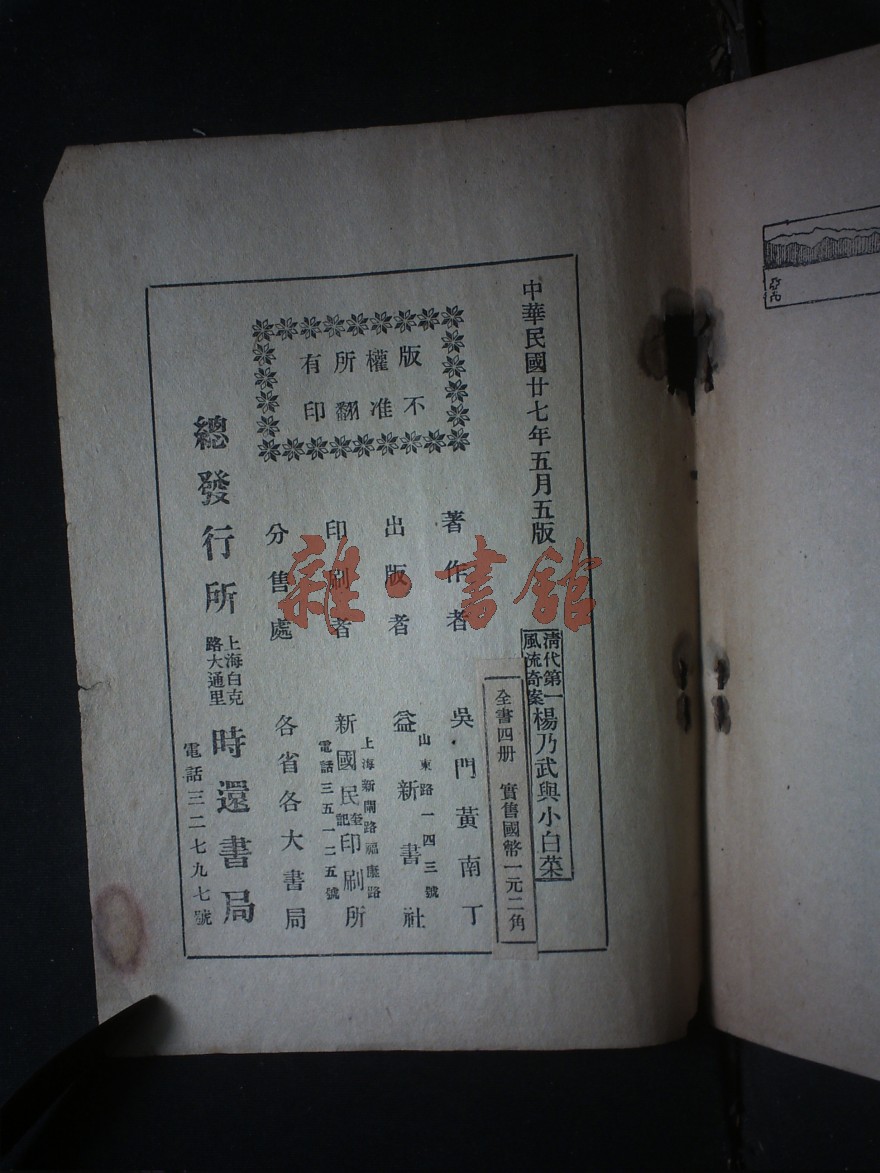 中華民國廿七年五月五版
清代第一
風流奇案
楊乃武與小白菜
全書四册 實售國幣一元二角
版權所有
不准翻印
著作者 吳門黃南丁
出版者 益新書社
山東路一四三號
印刷者 新國民奎記印刷所
上海新閘路福康路
電話三五一二五號
分售處 各省各大書局
總發行所 上海白克
路大通里 時還書局
電話三二七九七號
雜·書館